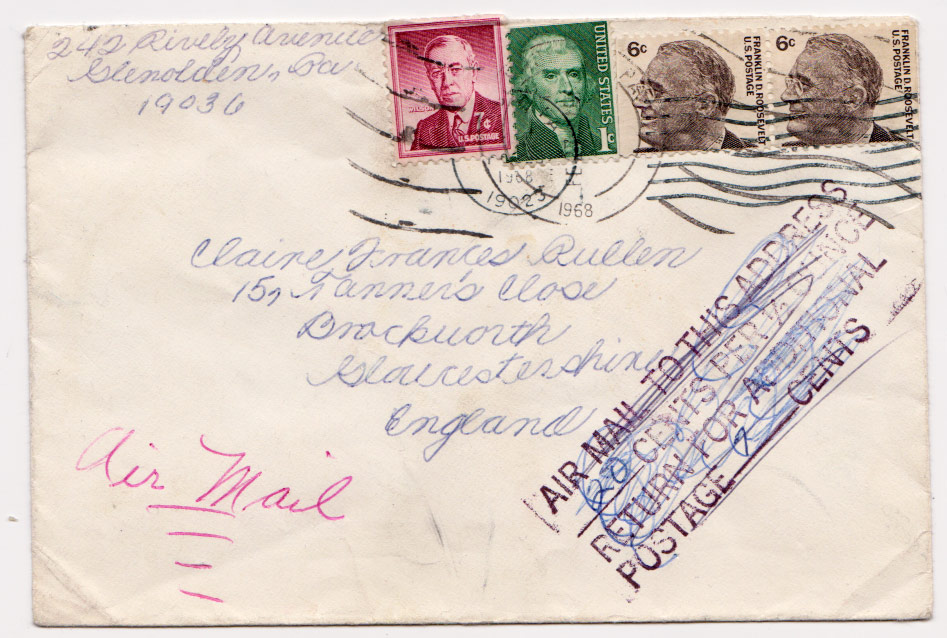 242 Rively Avenue
Glenolden, Pa.
19036
WILSON
7¢
U.S. POSTAGE
UNITED STATES
1c
6c
FRANKLIN D. ROOSEVELT
U.S. POSTAGE
6c
FRANKLIN D. ROOSEVELT
U.S. POSTAGE
1968
19023
1968
Claire Frances Pullen
15, Tanner's Close
Brockworth
Gloucestershire
England
Air Mail
AIR MAIL TO THIS ADDRESS
20 CENTS PER ½ OUNCE
RETURN FOR ADDITIONAL
POSTAGE 7 CENTS